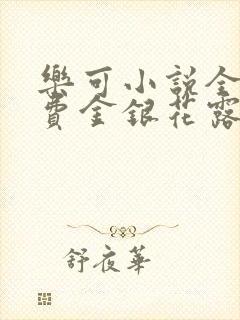 樂可小說全
費金銀花露
舒夜華